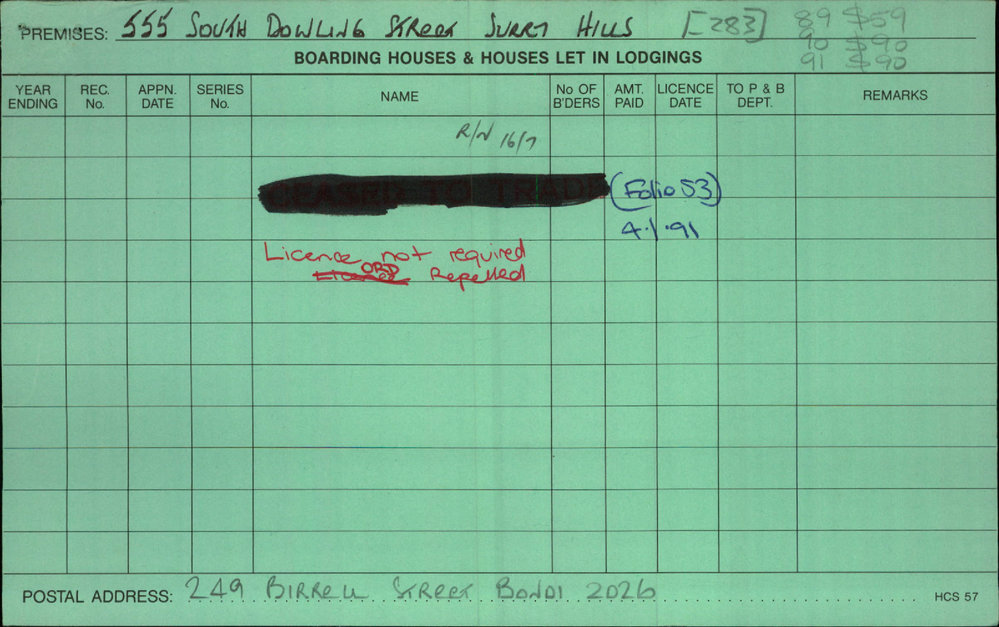 PREMISES: 555 SOUTH DOWLING STREET SURRY HILLS [283] 89 $59
90 $90
91 $90
BOARDING HOUSES & HOUSES LET IN LODGINGS
YEAR ENDING REC. No. APPN. DATE SERIES No. NAME No OF B'DERS AMT. PAID LICENCE DATE TO P & B DEPT. REMARKS
R/N 16/7
CEASED TO TRADE (Folio 53)
4.1.91
Licence not required
Licence ORD Repelled
POSTAL ADDRESS: 249 BIRRELL STREET BONDI 2026 HCS 57